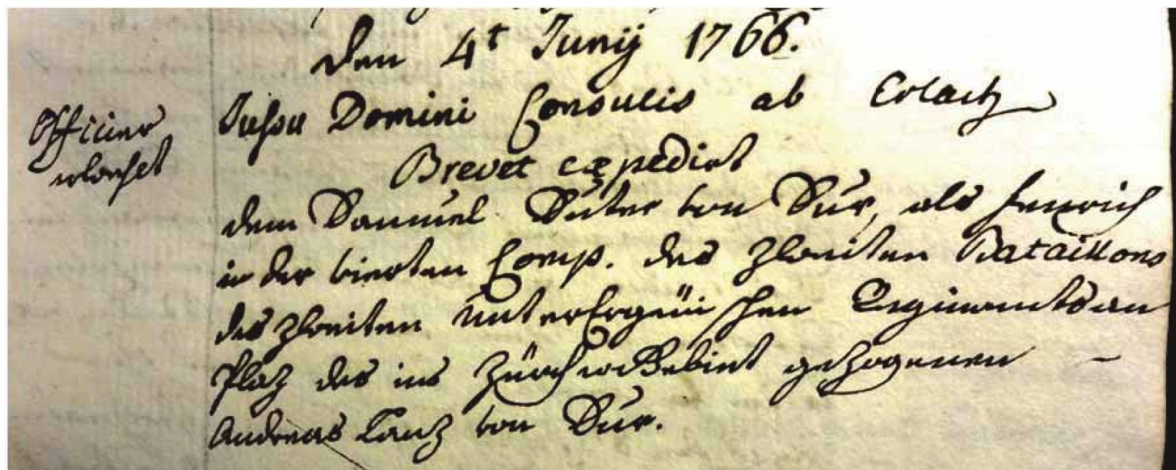 Den 4t Junij 1766.
Officier
Jussu Domini Consulis ab Erlach
Brevet expediert
dem Samuel Suter von Sur, als Fenrich
in der vierten Comp. des Zweiten Bataillons
des Zweiten UnterErgäüischen Regiments an
Plaz des ins Gebiet gezogenen
Andreas Lanz von Sur.